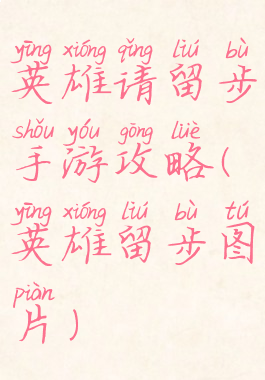 yīng xióng qǐng liú bù
英雄请留步
shǒu yóu gōng lüè
手游攻略(
yīng xióng liú bù tú
英雄留步图
piàn
片)